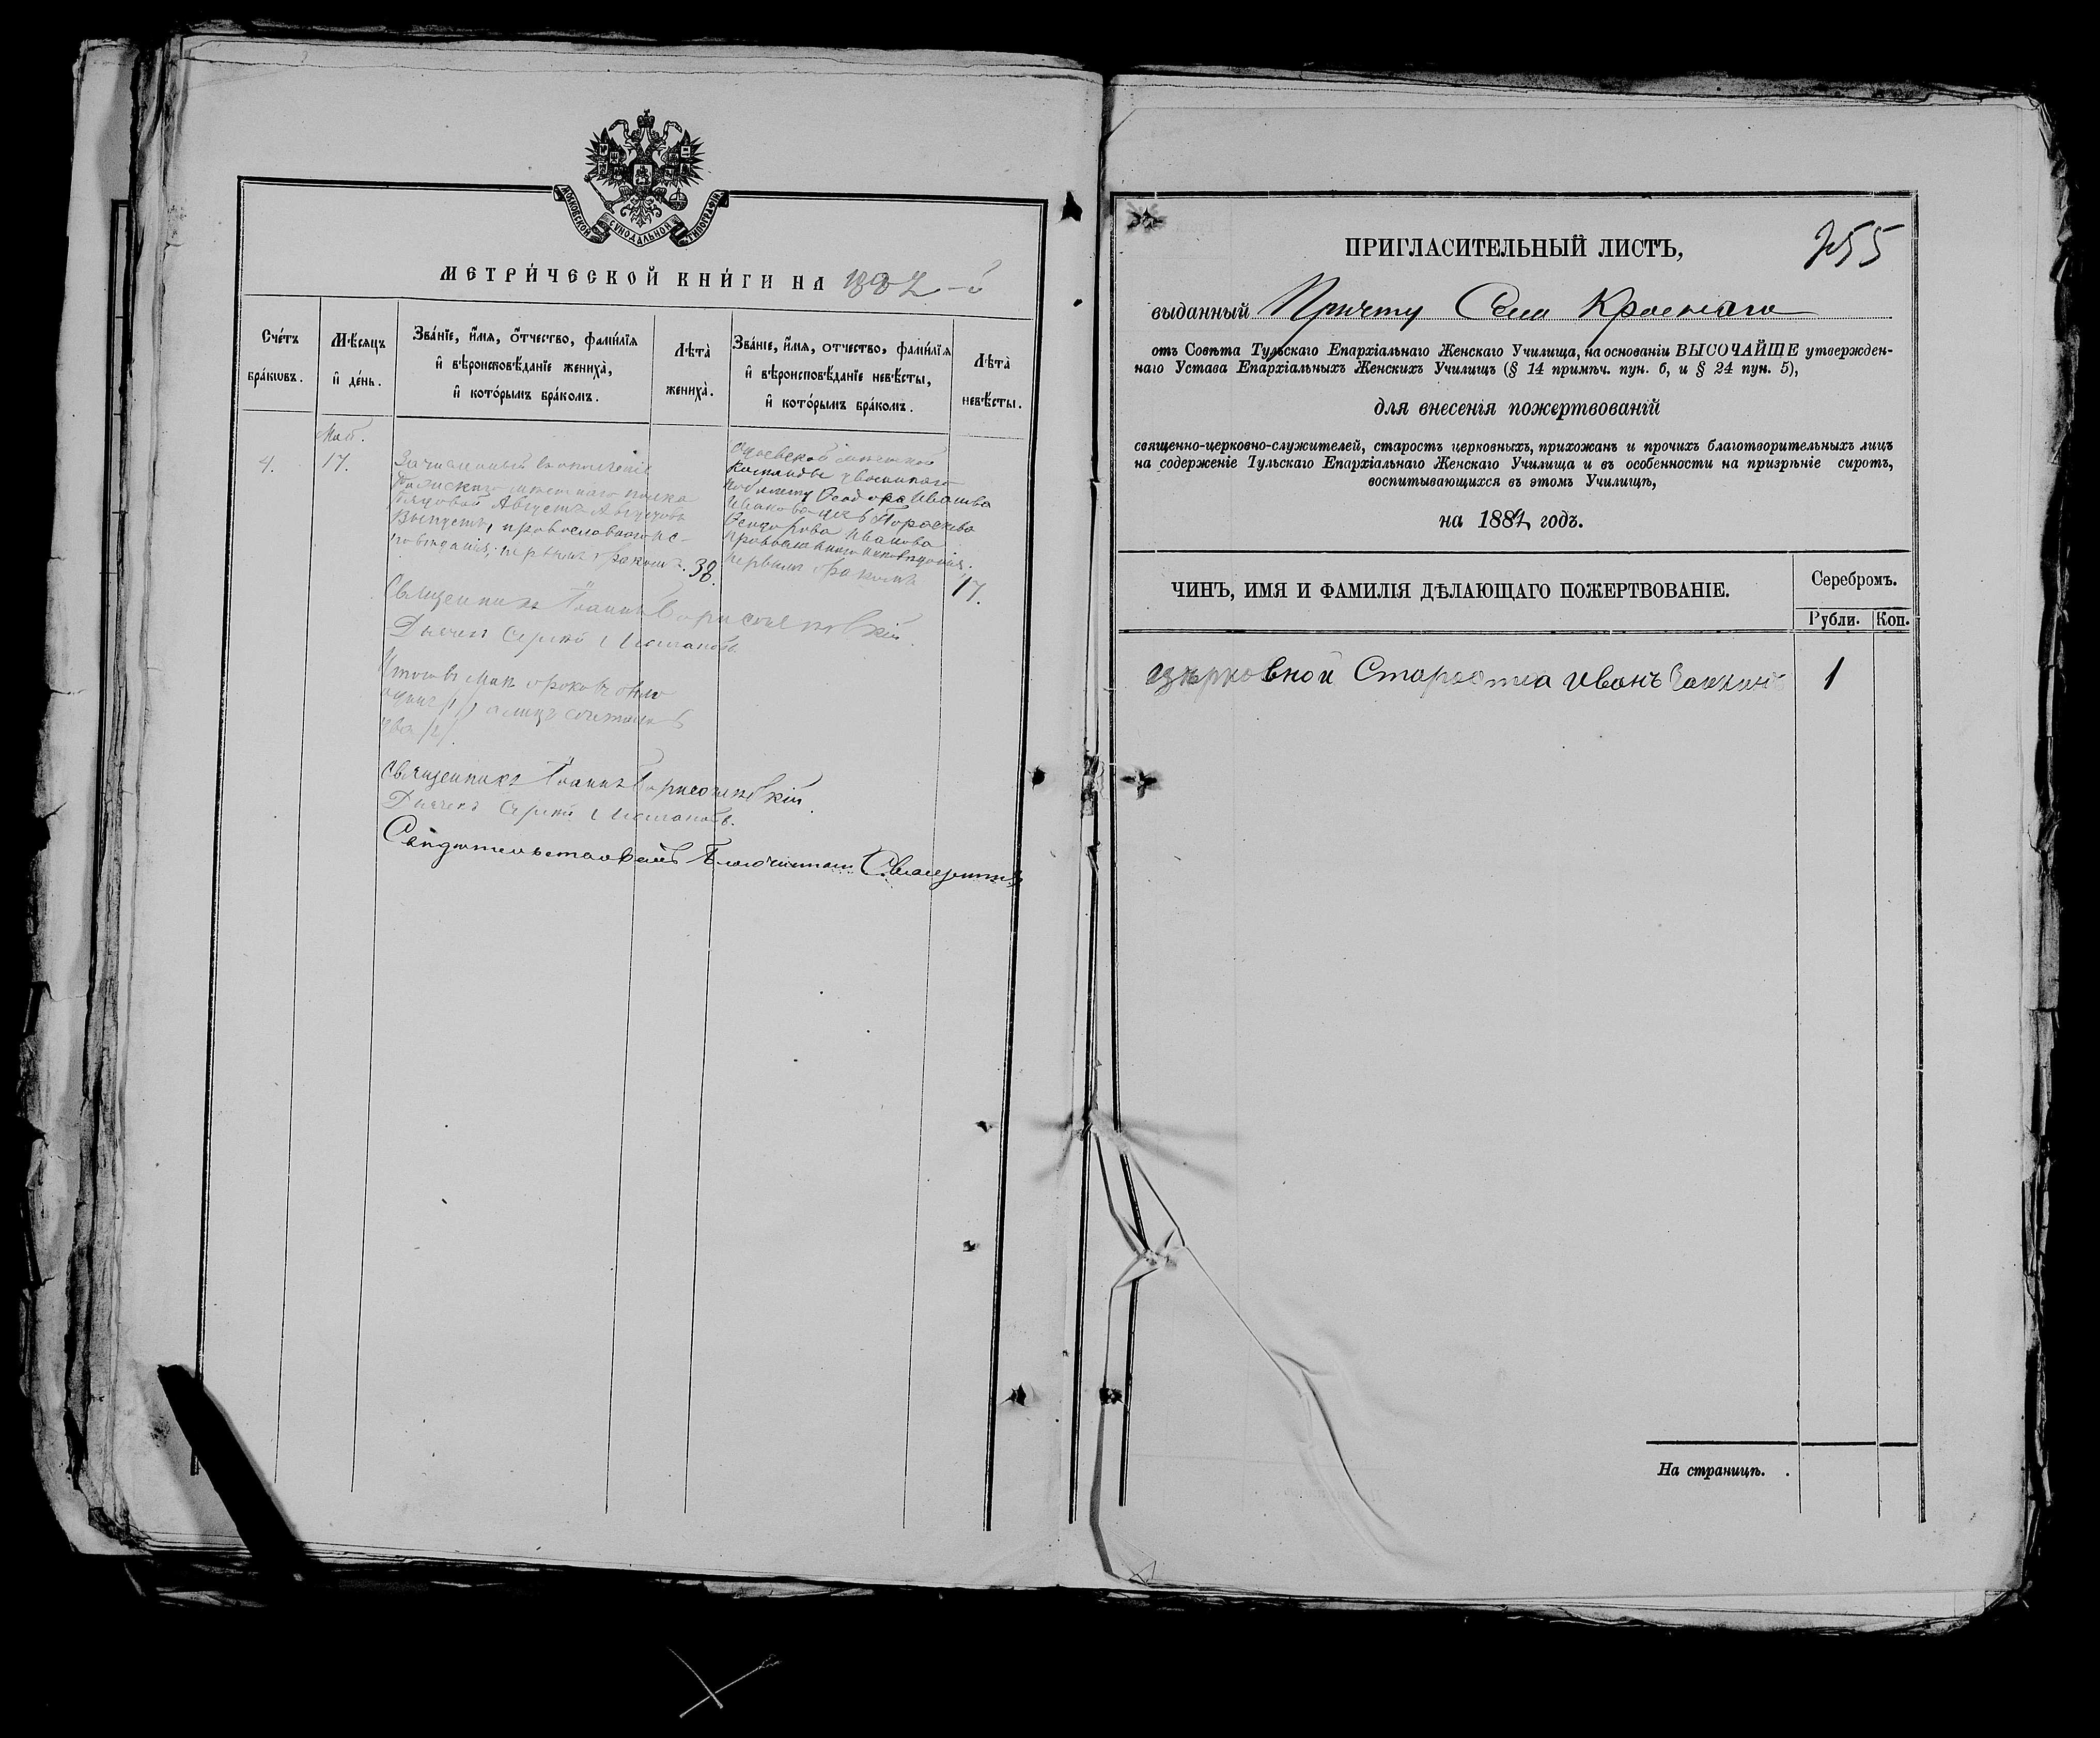 МОСКОВСКОЙ СѴНОДАЛЬНОЙ ТИПОГРАФІИ
МЕТРИ́ЧЕСКОЙ КНИ́ГИ НА 1882-й
Сче́тъ бра́кѡвъ.
Мѣ́сяцъ и҆ де́нь.
Зва́нїе, и҆́мя, ѻ҆́тчество, фами́лїя и҆ вѣроисповѣ́данїе жениха̀, и҆ кото́рымъ бра́комъ.
Лѣта̀ жениха̀.
Зва́нїе, и҆́мя, отчество, фами́лїя и҆ вѣроисповѣ́данїе невѣ́сты, и҆ кото́рымъ бра́комъ.
Лѣта̀ невѣ́сты.
Май.
4.
17.
Рядовой Августъ
православнаго ис-
повѣданія, первымъ бракомъ.
38.
мѣстной
команды
Ѳеодора Иванова
Параскева
Ѳеодорова Иванова
православнаго исповѣданія.
первымъ бракомъ
17.
Священникъ Іоаннъ Борисоглѣбскій.
Дьячекъ Сергій
Итого въ Маѣ браковъ было
одинъ /1/, а лицъ
два /2/.
Священникъ Іоаннъ Борисоглѣбскій.
Дьячекъ Сергій
Свидѣтельствовалъ Благочинный Священникъ
ПРИГЛАСИТЕЛЬНЫЙ ЛИСТЪ,
255
выданный Причту Села Краснаго
отъ Совѣта Тульскаго Епархіальнаго Женскаго Училища, на основаніи ВЫСОЧАЙШЕ утвержден-
наго Устава Епархіальныхъ Женскихъ Училищъ (§ 14 примѣч. пун. 6, и § 24 пун. 5),
для внесенія пожертвованій
священно-церковно-служителей, старостъ церковныхъ, прихожанъ и прочихъ благотворительныхъ лицъ
на содержаніе Тульскаго Епархіальнаго Женскаго Училища и въ особенности на призрѣніе сиротъ,
воспитывающихся въ этомъ Училищѣ,
на 1882 годъ.
ЧИНЪ, ИМЯ И ФАМИЛІЯ ДѢЛАЮЩАГО ПОЖЕРТВОВАНІЕ.
Серебромъ.
Рубли. Коп.
Церковной Староста Иванъ
1
На страницѣ.